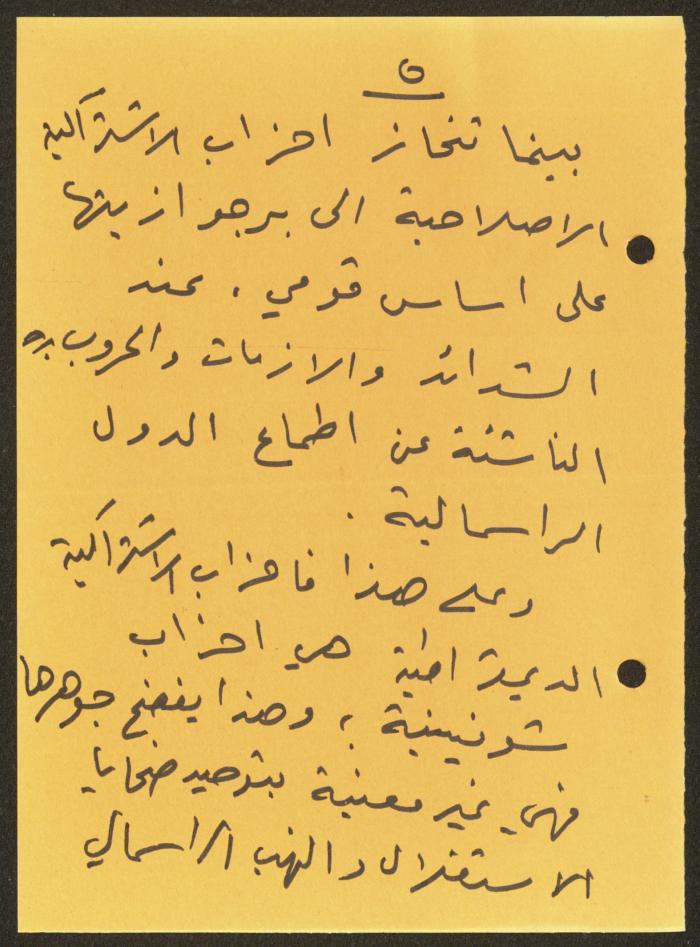 ٥
بينما تنحاز احزاب الاشتراكية
الاصلاحية الى برجوازيتها
على اساس قومي، عند
الشدائد والازمات والحروب
الناشئة عن اطماع الدول
الراسمالية.
وعلى هذا فاحزاب الاشتراكية
الديمقراطية هي احزاب
شوفينية، وهذا يفضح جوهرها
فهي غير معنية بتوحيد ضحايا
الاستغلال والنهب الراسمالي